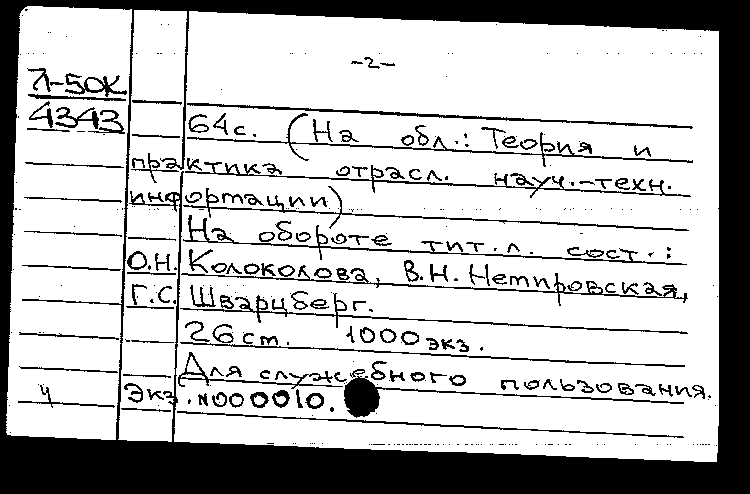 -2-
Л-50К
4343
64с. (На обл.: Теория и
практика отрасл. науч.-техн.
информации)
На обороте тит.л. сост.:
О.Н. Колоколова, В.Н. Немировская,
Г.С. Шварцберг.
26 ст. 1000 экз.
Для служебного пользования.
Ч Экз. №000010.